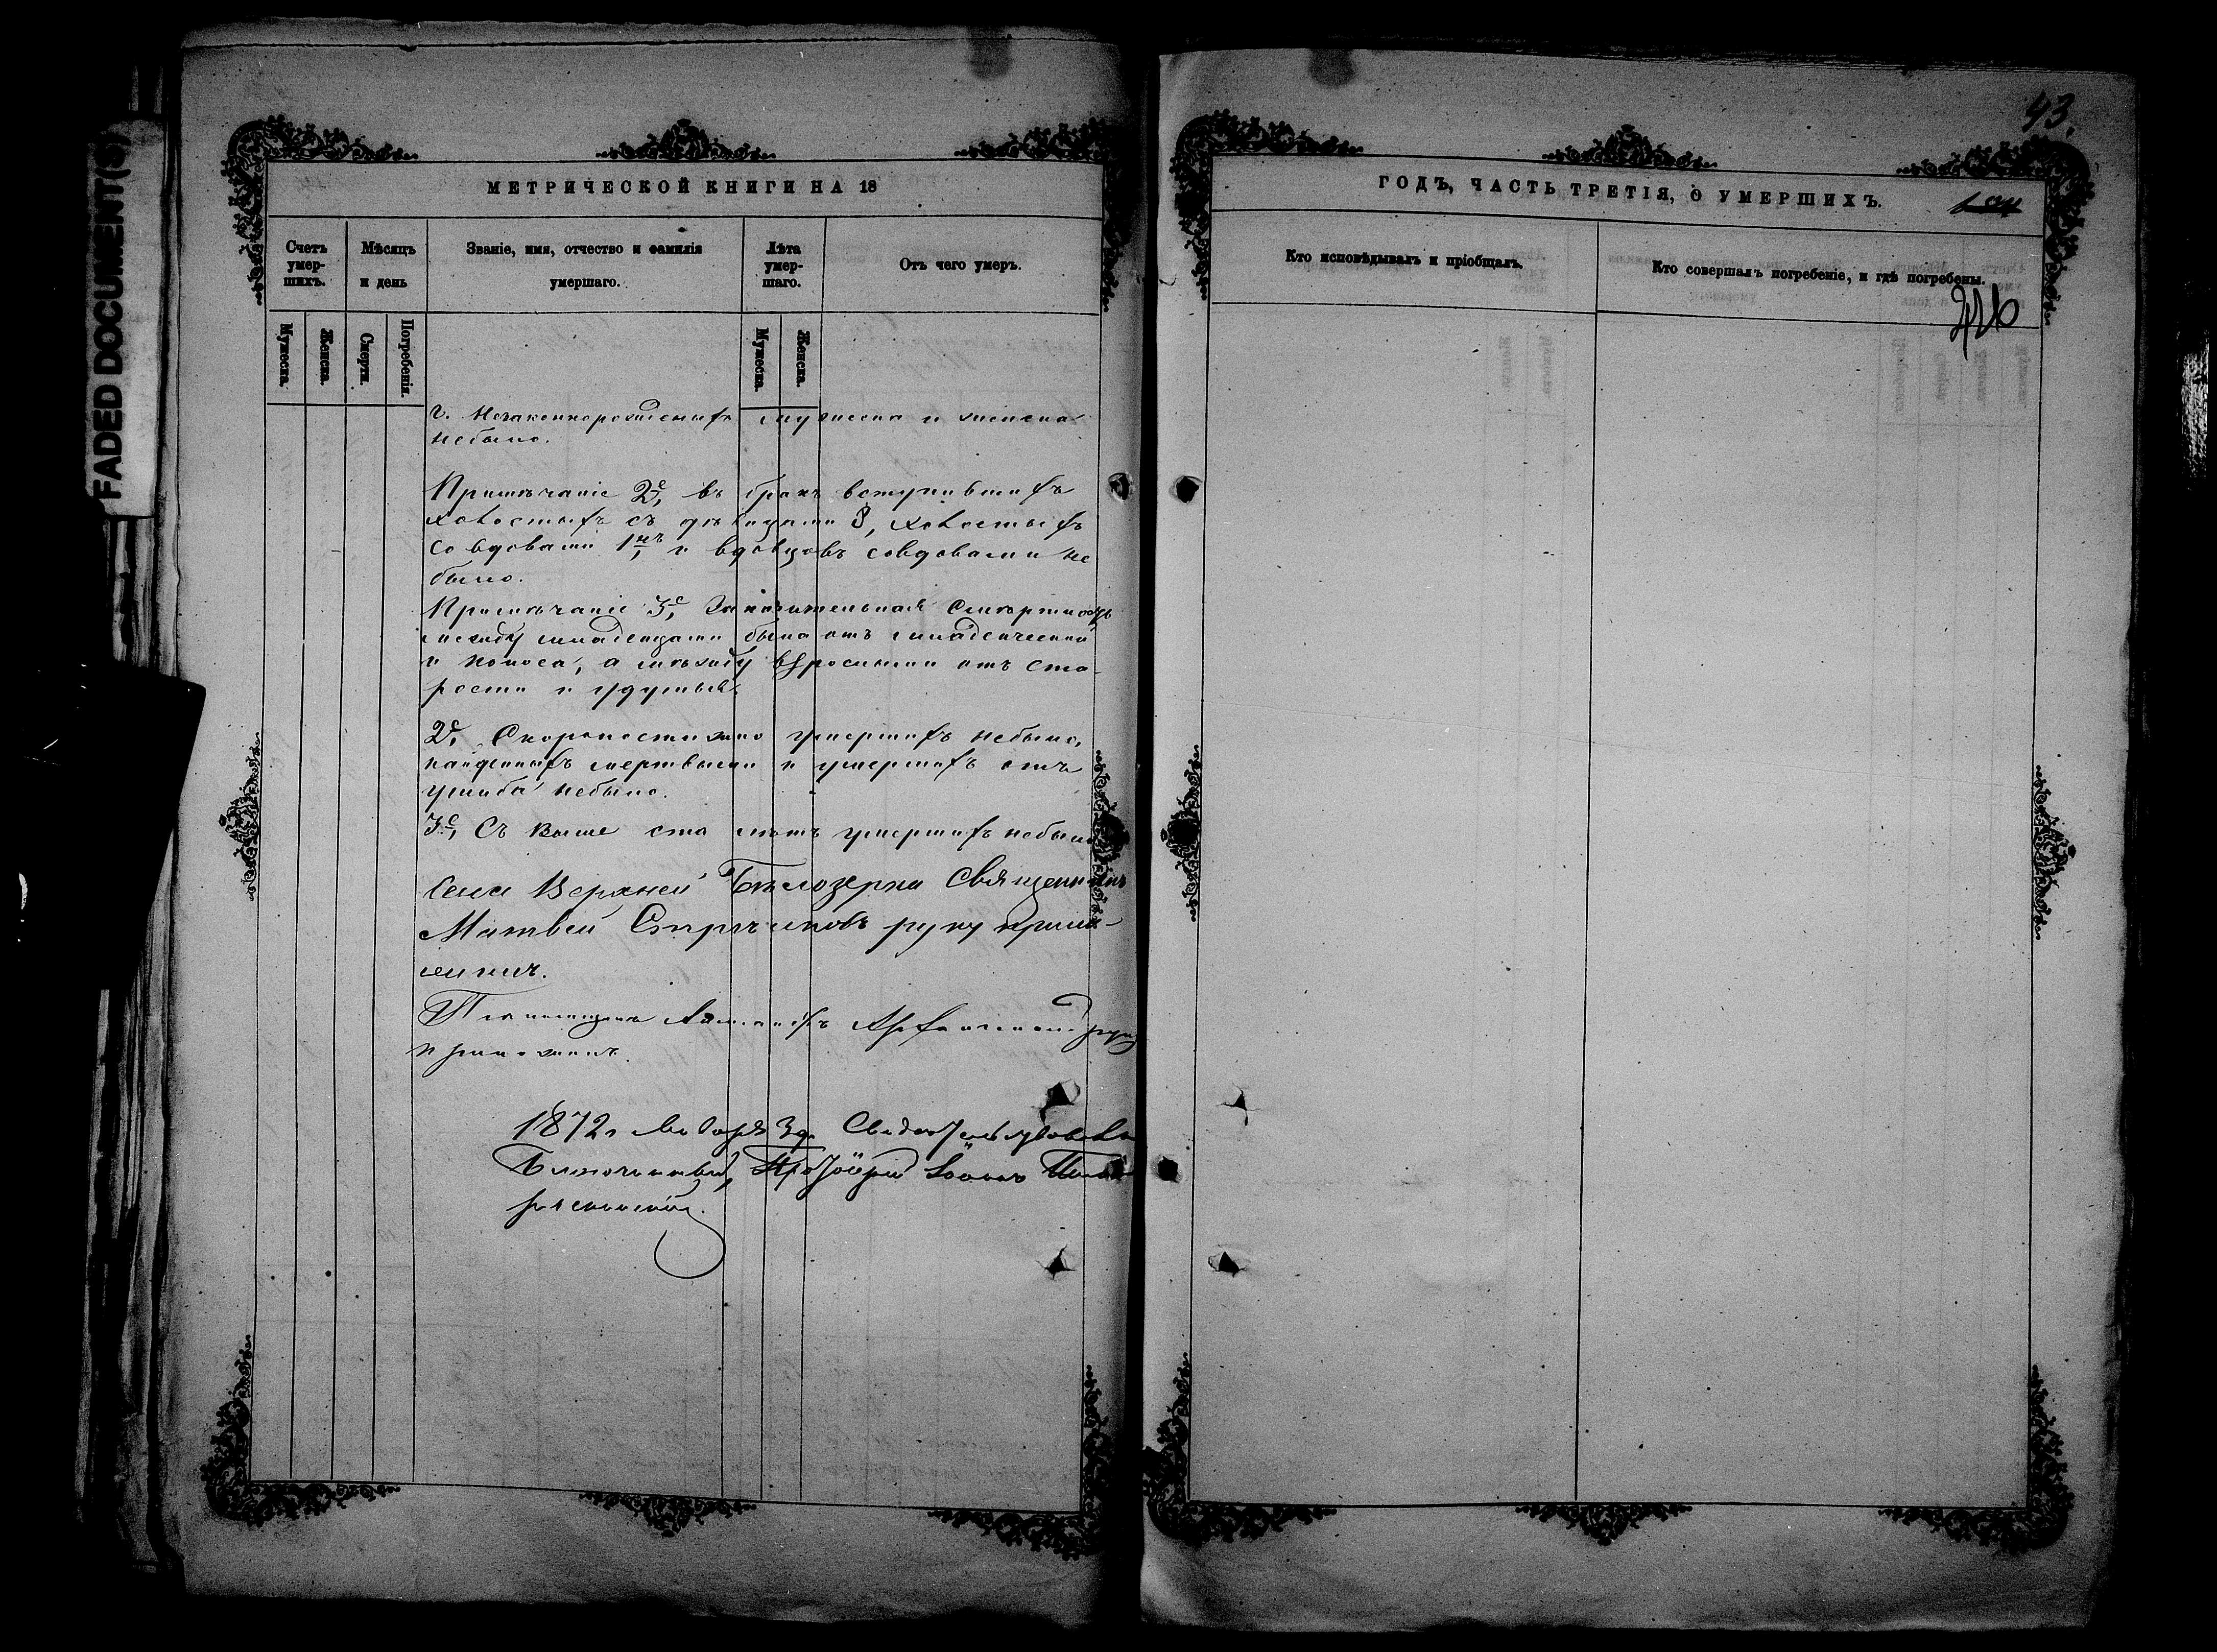 FADED DOCUMENT(S)
МЕТРИЧЕСКОЙ КНИГИ НА 18
Счетъ умер-шихъ.
Мѣсяцъ и день
Званіе, имя, отчество и фамилія умершаго.
Лѣта умер-шаго.
Отъ чего умеръ.
Мужеска.
Женска.
Смерти.
Погребенія.
Мужеска.
Женска.
г. Незаконнорожденыхъ мужеска и женска
небыло.
Примѣчаніе 2е, въ бракъ вступившихъ
холостыхъ съ дѣвицами 8, холостыхъ
со вдовами 1нъ, и вдовцовъ совдовами не
было.
Примѣчаніе 3е, Значительная смѣртность
между младенцами была отъ младенческой
и поноса, а мѣжду взрослыми отъ ста-
рости и удушья.
2е, Скоропостижно умершихъ небыло,
найденыхъ мертвыми и умершихъ отъ
ушиба небыло.
3е, Съ выше ста лѣтъ умершихъ небыло
Села Верхней Бѣлозерки Священникъ
Матвей руку прило-
жилъ.
руку
приложилъ.
1872 г. Января 3 д. Свидетельствовалъ
Благочинный, Протоіерей Іоаннъ
43.
ГОДЪ, ЧАСТЬ ТРЕТІЯ, О УМЕРШИХЪ.
Кто исповѣдывалъ и пріобщалъ.
Кто совершалъ погребеніе, и гдѣ погребены.